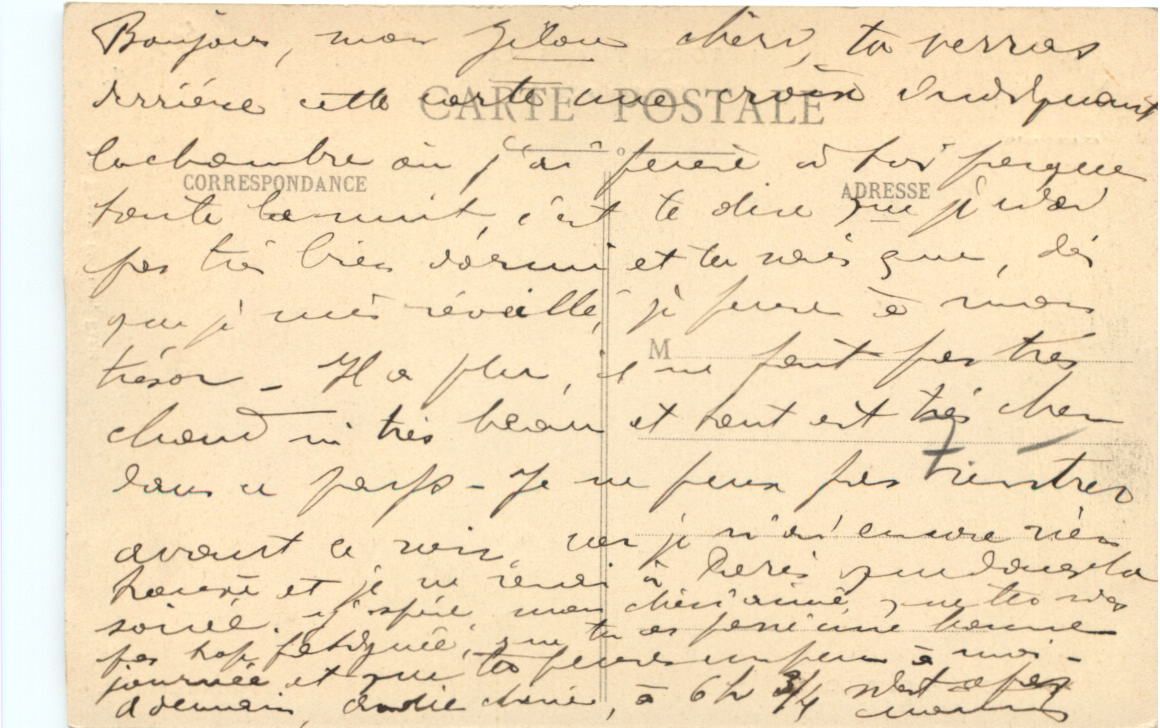 Bonjour, mon chéri, tu verras
CARTE POSTALE
derrière cette carte une croix indiquant
la chambre où j'ai pensé à toi presque
CORRESPONDANCE
ADRESSE
toute la nuit, c'est te dire que je n'ai
pas très bien dormi et tu sais que, dès
que je suis réveillé, je pense à mon
M
trésor - Il a plu, il ne fait pas très
chaud ni très beau et tout est très cher
dans ce pays - Je ne peux pas rentrer
avant ce soir, car je n'ai encore rien
trouvé et je ne serai à Paris que dans la
soirée. J'espère, mon chéri aimé, que tu n'es
pas trop fatiguée, que tu as passé une bonne
journée et que tu penses un peu à moi -
A demain, chérie, à 6 h 3/4